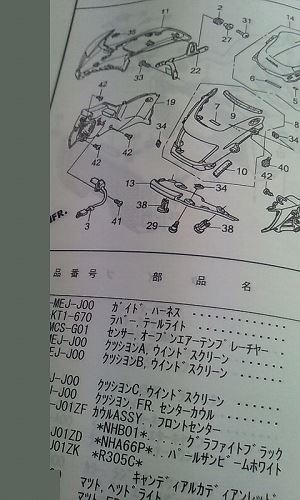 11
2
31
27
14
35
33
22
6
42
19
7
9
8
34
42
42
40
10
13
34
42
38
3
41
29
38
FR.
品 番 号 部 品 名
-MEJ-J00 ガイド, ハーネス
KT1-670 ラバー, テールライト
MCS-G01 センサー, オープンエアーテンプレーチャー
MEJ-J00 クッションA, ウインドスクリーン
EJ-J00 クッションB, ウインドスクリーン
J-J00 クッションC, ウインドスクリーン
-J00 クッション, FR. センターカウル
J01ZF カウルASSY., フロントセンター
*NHB01* グラファイトブラック
J01ZD *NHA66P* パールサンビームホワイト
J01ZK *R305C*
キャンディアルカディアンレッド
マット, ヘッドライト